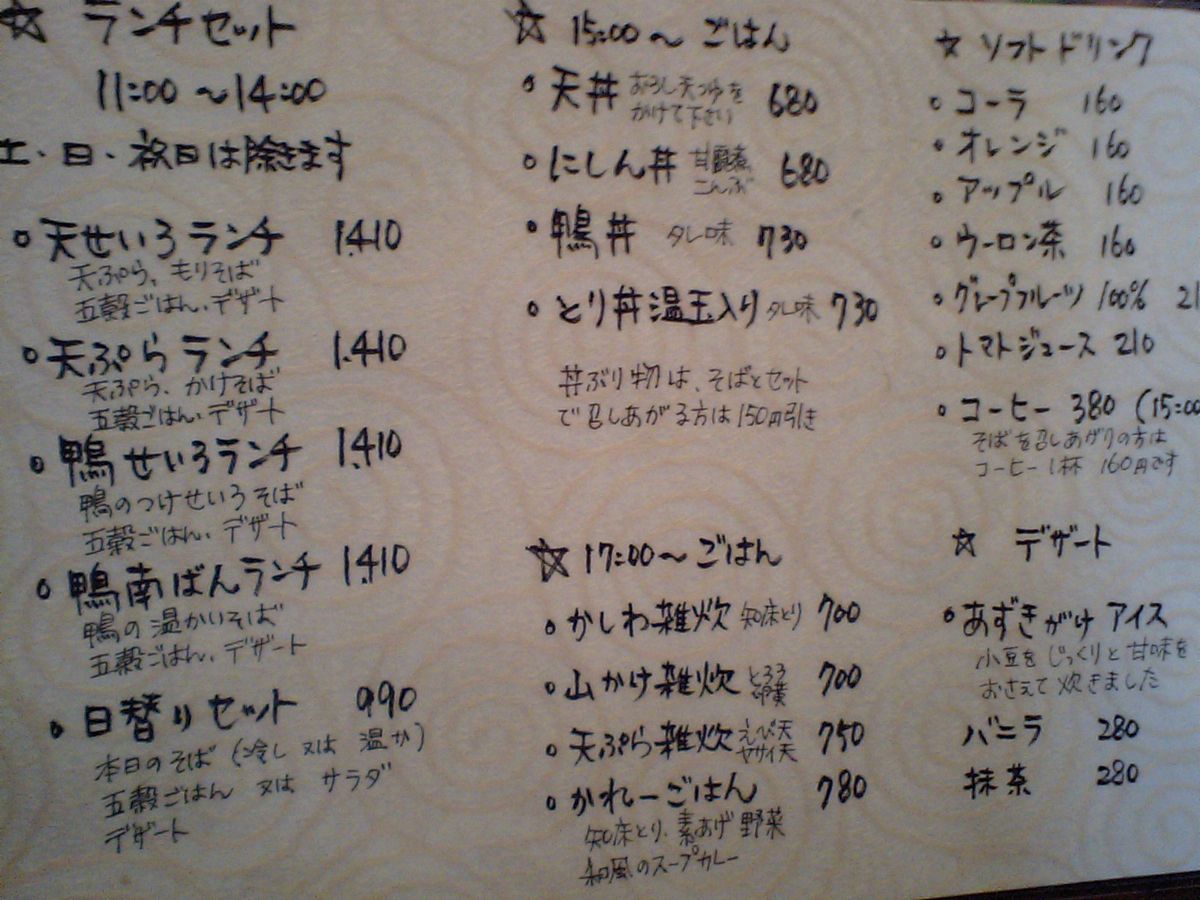 ☆ ランチセット
11:00 〜14:00
土・日・祝日は除きます
○ 天せいろランチ 1.410
天ぷら、もりそば
五穀ごはん、デザート
○ 天ぷらランチ 1.410
天ぷら、かけそば
五穀ごはん、デザート
○ 鴨せいろランチ 1.410
鴨のつけせいろそば
五穀ごはん、デザート
○ 鴨南ばんランチ 1.410
鴨の温かいそば
五穀ごはん、デザート
○ 日替りセット 990
本日のそば (冷し又は 温か)
五穀ごはん 又は サラダ
デザート
☆ 15:00〜 ごはん
○ 天丼 おろし天つゆを
かけて下さい 680
○ にしん丼 甘露煮
こんぶ 680
○ 鴨丼 タレ味 730
○ とり丼温玉入り タレ味 730
丼ぶり物は、そばとセット
で召しあがる方は150円引き
☆ 17:00〜ごはん
○ かしわ雑炊 知床とり 700
○ 山かけ雑炊 とろろ
卵黄 700
○ 天ぷら雑炊 えび天
ヤサイ天 750
○ かれーごはん 780
知床とり、素あげ野菜
和風のスープカレー
☆ ソフトドリンク
○ コーラ 160
○ オレンジ 160
○ アップル 160
○ ウーロン茶 160
○ グレープフルーツ 100% 21
○ トマトジュース 210
○ コーヒー 380 (15:00
そばを召しあがりの方は
コーヒー1杯 160円です
☆ デザート
○ あずきがけ アイス
小豆をじっくりと甘味を
おさえて炊きました
バニラ 280
抹茶 280